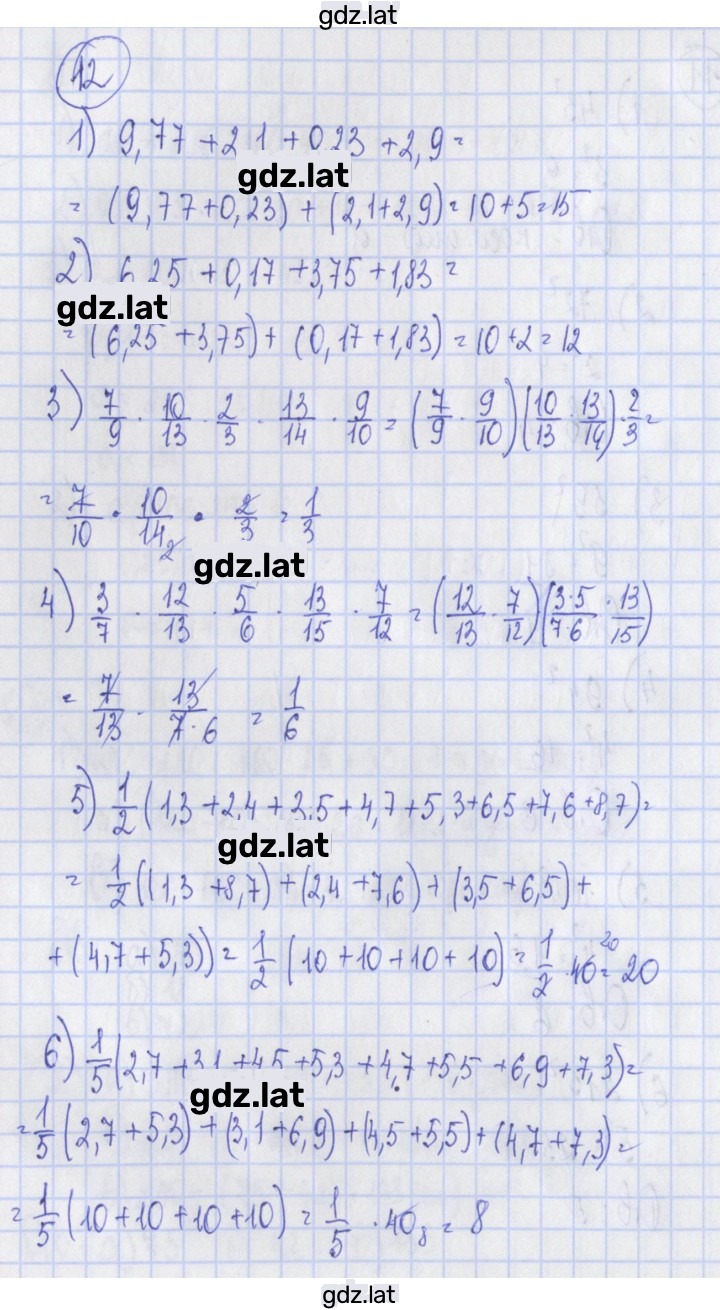 gdz.lat
12
1) 9,77 + 2,1 + 0,23 + 2,9 =
gdz.lat
= (9,77+0,23) + (2,1+2,9) = 10+5=15
2) 6,25 + 0,17 + 3,75 + 1,83 =
gdz.lat
= (6,25 + 3,75) + (0,17 + 1,83) = 10 + 2 = 12
3) 7/9 · 10/13 · 2/3 · 13/14 · 9/10 = (7/9 · 9/10)(10/13 · 13/14) · 2/3 =
= 7/10 · 10/14 2 · 2/3 = 1/3
gdz.lat
4) 3/7 · 12/13 · 5/6 · 13/15 · 7/12 = (12/13 · 7/12)(3·5/7·6 · 13/15)
= 7/13 · 13/7·6 = 1/6
5) 1/2 (1,3 + 2,4 + 3,5 + 4,7 + 5,3 + 6,5 + 7,6 + 8,7) =
gdz.lat
= 1/2 ((1,3 + 8,7) + (2,4 + 7,6) + (3,5 + 6,5) +
+ (4,7 + 5,3)) = 1/2 (10 + 10 + 10 + 10) = 1/2 · 40 20 = 20
6) 1/5 (2,7 + 3,1 + 4,5 + 5,3 + 4,7 + 5,5 + 6,9 + 7,3) =
gdz.lat
= 1/5 (2,7 + 5,3) + (3,1 + 6,9) + (4,5 + 5,5) + (4,7 + 7,3) =
= 1/5 (10 + 10 + 10 + 10) = 1/5 · 40 8 = 8
gdz.lat